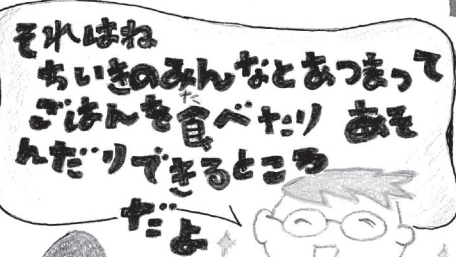 それはね
ちいきのみんなとあつまって
ごはんを食べたり あそ
んだりできるところ
だよ